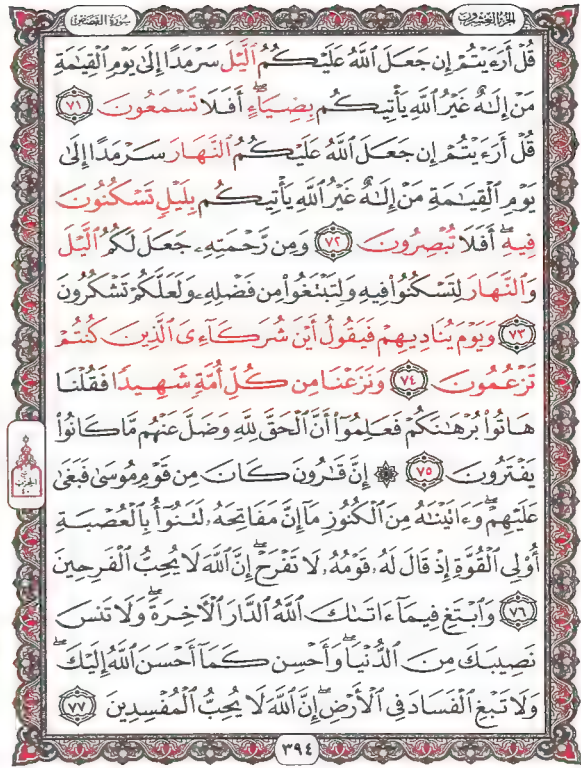 الجزء العشرون
سورة القصص
قُلْ أَرَءَيْتُمْ إِن جَعَلَ ٱللَّهُ عَلَيْكُمُ ٱلَّيْلَ سَرْمَدًا إِلَىٰ يَوْمِ ٱلْقِيَٰمَةِ
مَنْ إِلَٰهٌ غَيْرُ ٱللَّهِ يَأْتِيكُم بِضِيَآءٍ ۖ أَفَلَا تَسْمَعُونَ ٧١
قُلْ أَرَءَيْتُمْ إِن جَعَلَ ٱللَّهُ عَلَيْكُمُ ٱلنَّهَارَ سَرْمَدًا إِلَىٰ
يَوْمِ ٱلْقِيَٰمَةِ مَنْ إِلَٰهٌ غَيْرُ ٱللَّهِ يَأْتِيكُم بِلَيْلٍ تَسْكُنُونَ
فِيهِ ۖ أَفَلَا تُبْصِرُونَ ٧٢ وَمِن رَّحْمَتِهِۦ جَعَلَ لَكُمُ ٱلَّيْلَ
وَٱلنَّهَارَ لِتَسْكُنُوا۟ فِيهِ وَلِتَبْتَغُوا۟ مِن فَضْلِهِۦ وَلَعَلَّكُمْ تَشْكُرُونَ
٧٣ وَيَوْمَ يُنَادِيهِمْ فَيَقُولُ أَيْنَ شُرَكَآءِىَ ٱلَّذِينَ كُنتُمْ
تَزْعُمُونَ ٧٤ وَنَزَعْنَا مِن كُلِّ أُمَّةٍ شَهِيدًا فَقُلْنَا
هَاتُوا۟ بُرْهَٰنَكُمْ فَعَلِمُوٓا۟ أَنَّ ٱلْحَقَّ لِلَّهِ وَضَلَّ عَنْهُم مَّا كَانُوا۟
يَفْتَرُونَ ٧٥ ۞ إِنَّ قَٰرُونَ كَانَ مِن قَوْمِ مُوسَىٰ فَبَغَىٰ
عَلَيْهِمْ ۖ وَءَاتَيْنَٰهُ مِنَ ٱلْكُنُوزِ مَآ إِنَّ مَفَاتِحَهُۥ لَتَنُوٓأُ بِٱلْعُصْبَةِ
أُو۟لِى ٱلْقُوَّةِ إِذْ قَالَ لَهُۥ قَوْمُهُۥ لَا تَفْرَحْ ۖ إِنَّ ٱللَّهَ لَا يُحِبُّ ٱلْفَرِحِينَ
٧٦ وَٱبْتَغِ فِيمَآ ءَاتَىٰكَ ٱللَّهُ ٱلدَّارَ ٱلْءَاخِرَةَ ۖ وَلَا تَنسَ
نَصِيبَكَ مِنَ ٱلدُّنْيَا ۖ وَأَحْسِن كَمَآ أَحْسَنَ ٱللَّهُ إِلَيْكَ ۖ
وَلَا تَبْغِ ٱلْفَسَادَ فِى ٱلْأَرْضِ ۖ إِنَّ ٱللَّهَ لَا يُحِبُّ ٱلْمُفْسِدِينَ ٧٧
الحزب
٤٠
٣٩٤